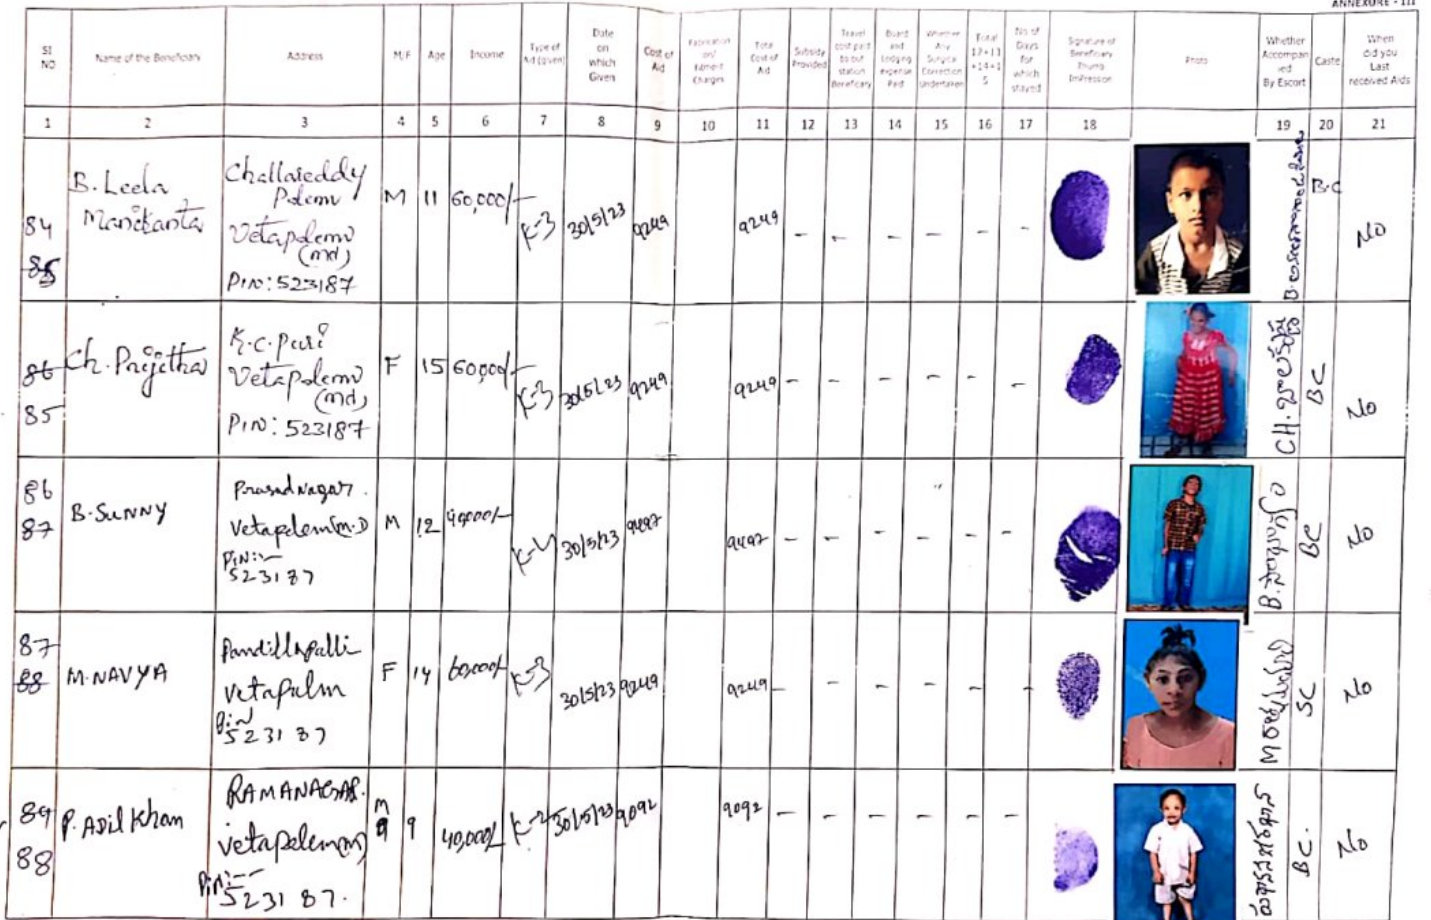 ANNEXURE - III
SI NO
Name of the Beneficiary
Address
M/F
Age
Income
Type of Aid (given)
Date on which Given
Cost of Aid
Fabrication on/ Fitment Charges
Total Cost of Aid
Subsidy Provided
Travel cost paid to out station Beneficiary
Board and lodging expense Paid
Whether Any Surgical Correction Undertaken
Total 12+13 +14+1 5
No of Days for which stayed
Signature of Beneficiary Thumb Impression
Photo
Whether Accompan ied By Escort
Caste
When did you Last received Aids
1 2 3 4 5 6 7 8 9 10 11 12 13 14 15 16 17 18 19 20 21
84
85
B. Leela
Manikanta
Challareddy
Palem
Vetapalem
(md)
Pin: 523187
M 11 60,000/- K-3 30/5/23 9249 9249 - - - - - -
B.C
No
86
85
Ch. Prijitha
K.C. Puri
Vetapalem
(md)
Pin: 523187
F 15 60,000/- K-3 30/5/23 9249 9249 - - - - - -
CH.
BC
No
86
87
B. SUNNY
Prasad Nagar.
Vetapalem(M.D)
Pin:-
523187
M 12 40,000/- K-4 30/5/23 9497 9497 - - - - - -
B.
BC
No
87
88
M. NAVYA
Pandillapalli
Vetapalm
Pin
523187
F 14 60,000/- K-3 30/5/23 9249 9249 - - - - - -
M
SC
No
89
88
P. Adil Khan
RAMANAGAR.
Vetapalem(m)
Pin:--
523187.
M 9 40,000/- K-2 30/5/23 9092 9092 - - - - - -
BC.
No